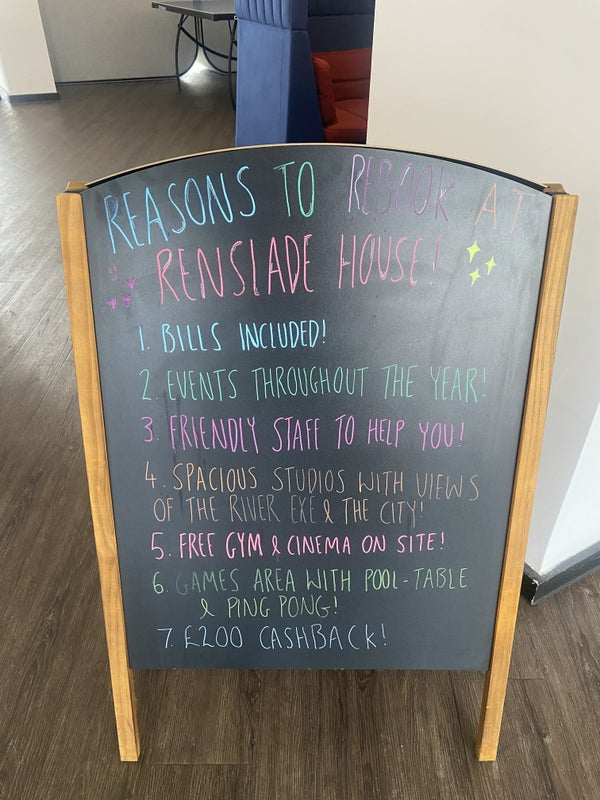 REASONS TO REBOOK AT
RENSLADE HOUSE!
1. BILLS INCLUDED!
2. EVENTS THROUGHOUT THE YEAR!
3. FRIENDLY STAFF TO HELP YOU!
4. SPACIOUS STUDIOS WITH VIEWS
OF THE RIVER EXE & THE CITY!
5. FREE GYM & CINEMA ON SITE!
6. GAMES AREA WITH POOL-TABLE
& PING PONG!
7. £200 CASHBACK!